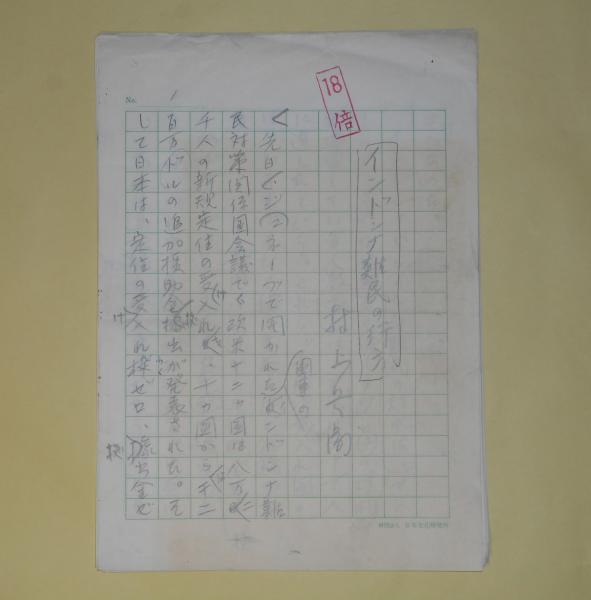 No. 1
18倍
インドシナ難民の行方
先日、ジュネーブで開かれたインドシナ難
民対策関係国会議で、欧米十二ヵ国は八万
千人の新規定住の受け入れ、十ヵ国から千二
百万ドルの追加援助金拠出が発表された。そ
して日本は、定住の受け入れ枠ゼロ、拠出金ゼ